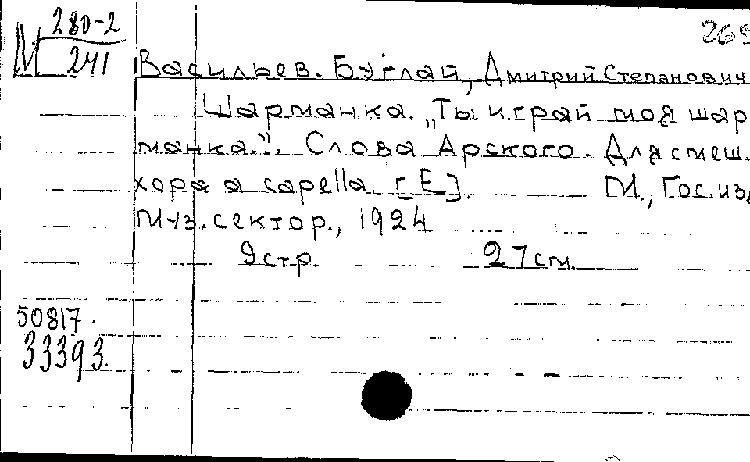 М 280-2
241
269
Васильев-Буглай, Дмитрий Степанович
Шарманка. „Ты играй моя шар
манка.". Слова Арского. Для смеш.
хора a capella [E]. М., Гос. из
Муз. сектор., 1924
9 стр. 27 см.
50817.
33393.